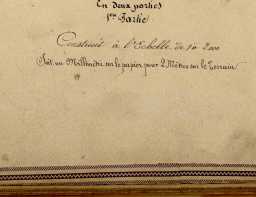 En deux parties
1ère Partie
Construit à l'Echelle de 1 à 2000
Soit un Millimètre sur le papier pour 2 Mètres sur le Terrain